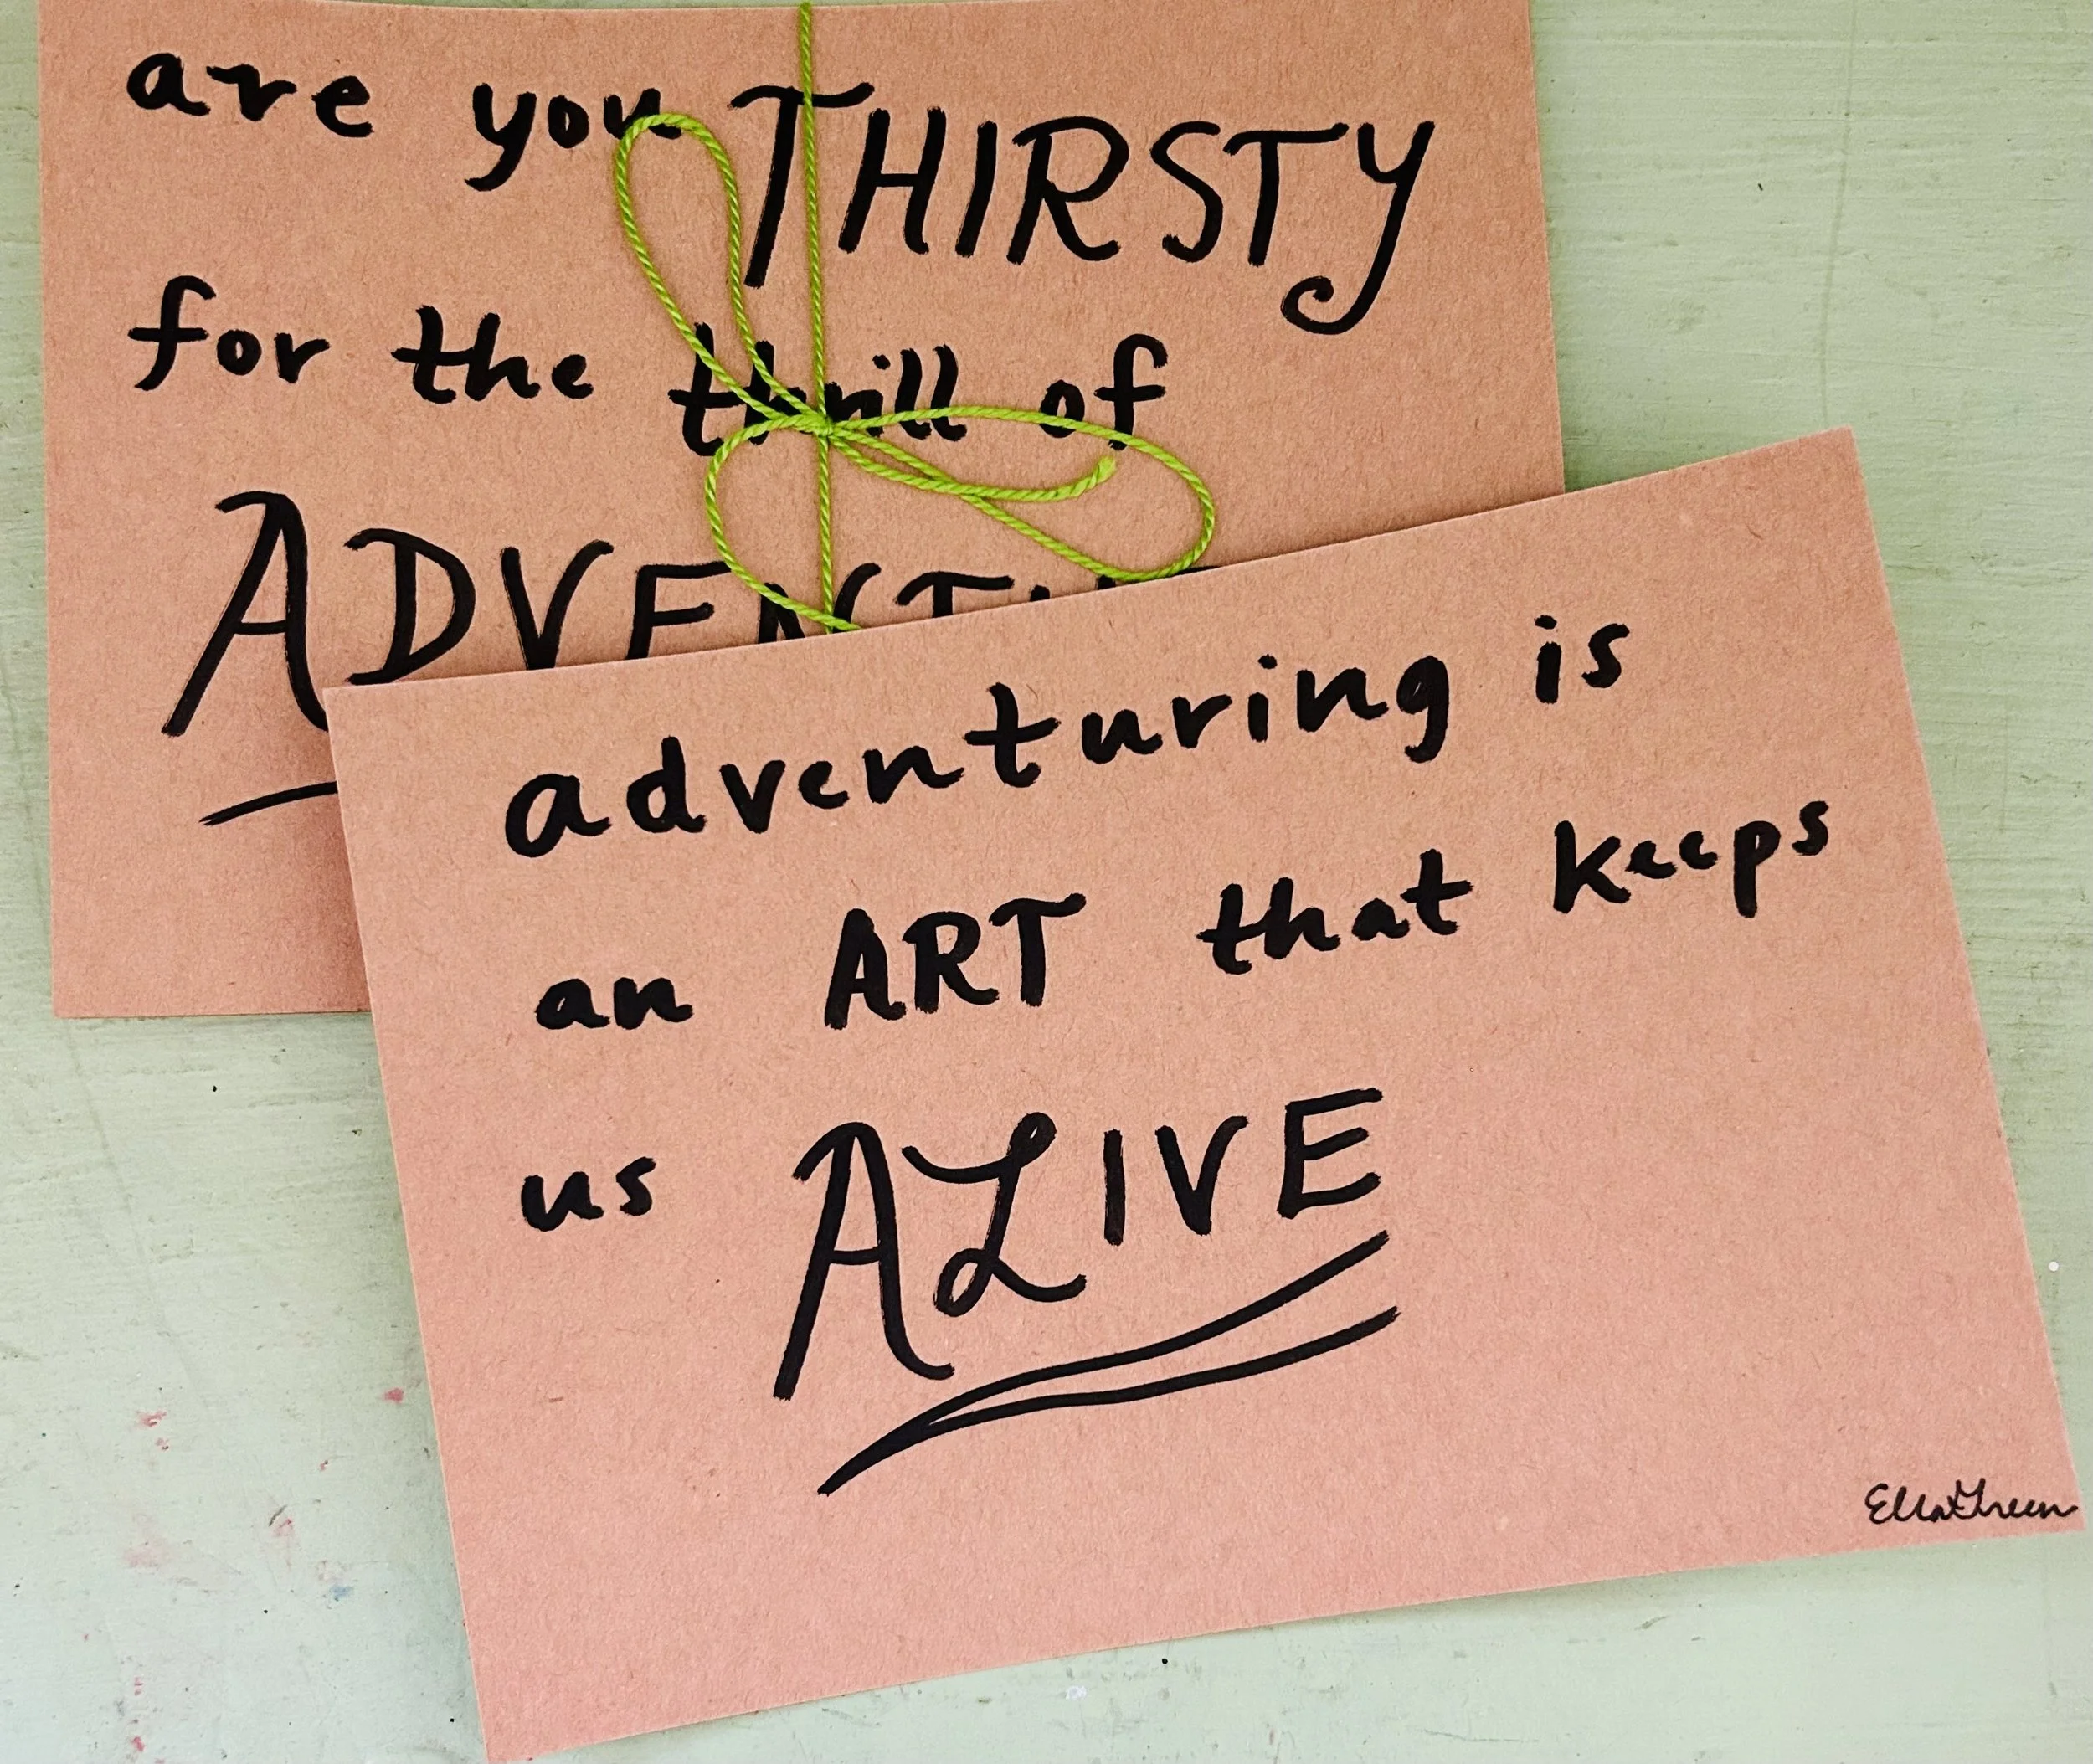 are you THIRSTY
for the thrill of
ADVENTU
adventuring is
an ART that keeps
us ALIVE
Ella Green